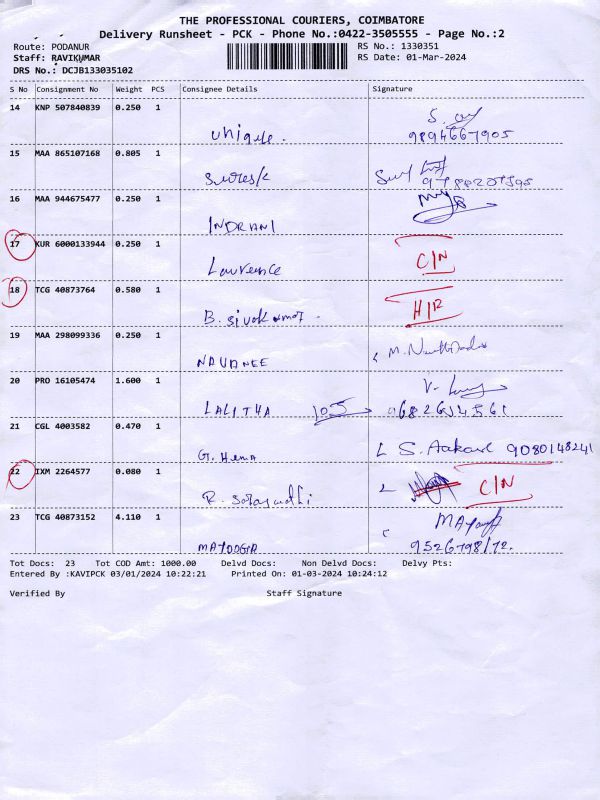 THE PROFESSIONAL COURIERS, COIMBATORE
Delivery Runsheet - PCK - Phone No.:0422-3505555 - Page No.:2
Route: PODANUR RS No.: 1330351
Staff: RAVIKUMAR RS Date: 01-Mar-2024
DRS No.: DCJB133035102
S No Consignment No Weight PCS Consignee Details Signature
14 KNP 507840839 0.250 1
unique. 9894667905
15 MAA 865107168 0.805 1
Suresh
16 MAA 944675477 0.250 1
INDRANI
17 KUR 6000133944 0.250 1 C/N
Lawrence
18 TCG 40873764 0.580 1 H/R
B. Sivakumar.
19 MAA 298099336 0.250 1
NAVANEE
20 PRO 16105474 1.600 1
LALITHA 105
21 CGL 4003582 0.470 1
G. Hema S. Aakash 9080148241
22 IXM 2264577 0.080 1 C/N
R. Saraswathi
23 TCG 40873152 4.110 1
Tot Docs: 23 Tot COD Amt: 1000.00 Delvd Docs: Non Delvd Docs: Delvy Pts:
Entered By :KAVIPCK 03/01/2024 10:22:21 Printed On: 01-03-2024 10:24:12
Verified By Staff Signature